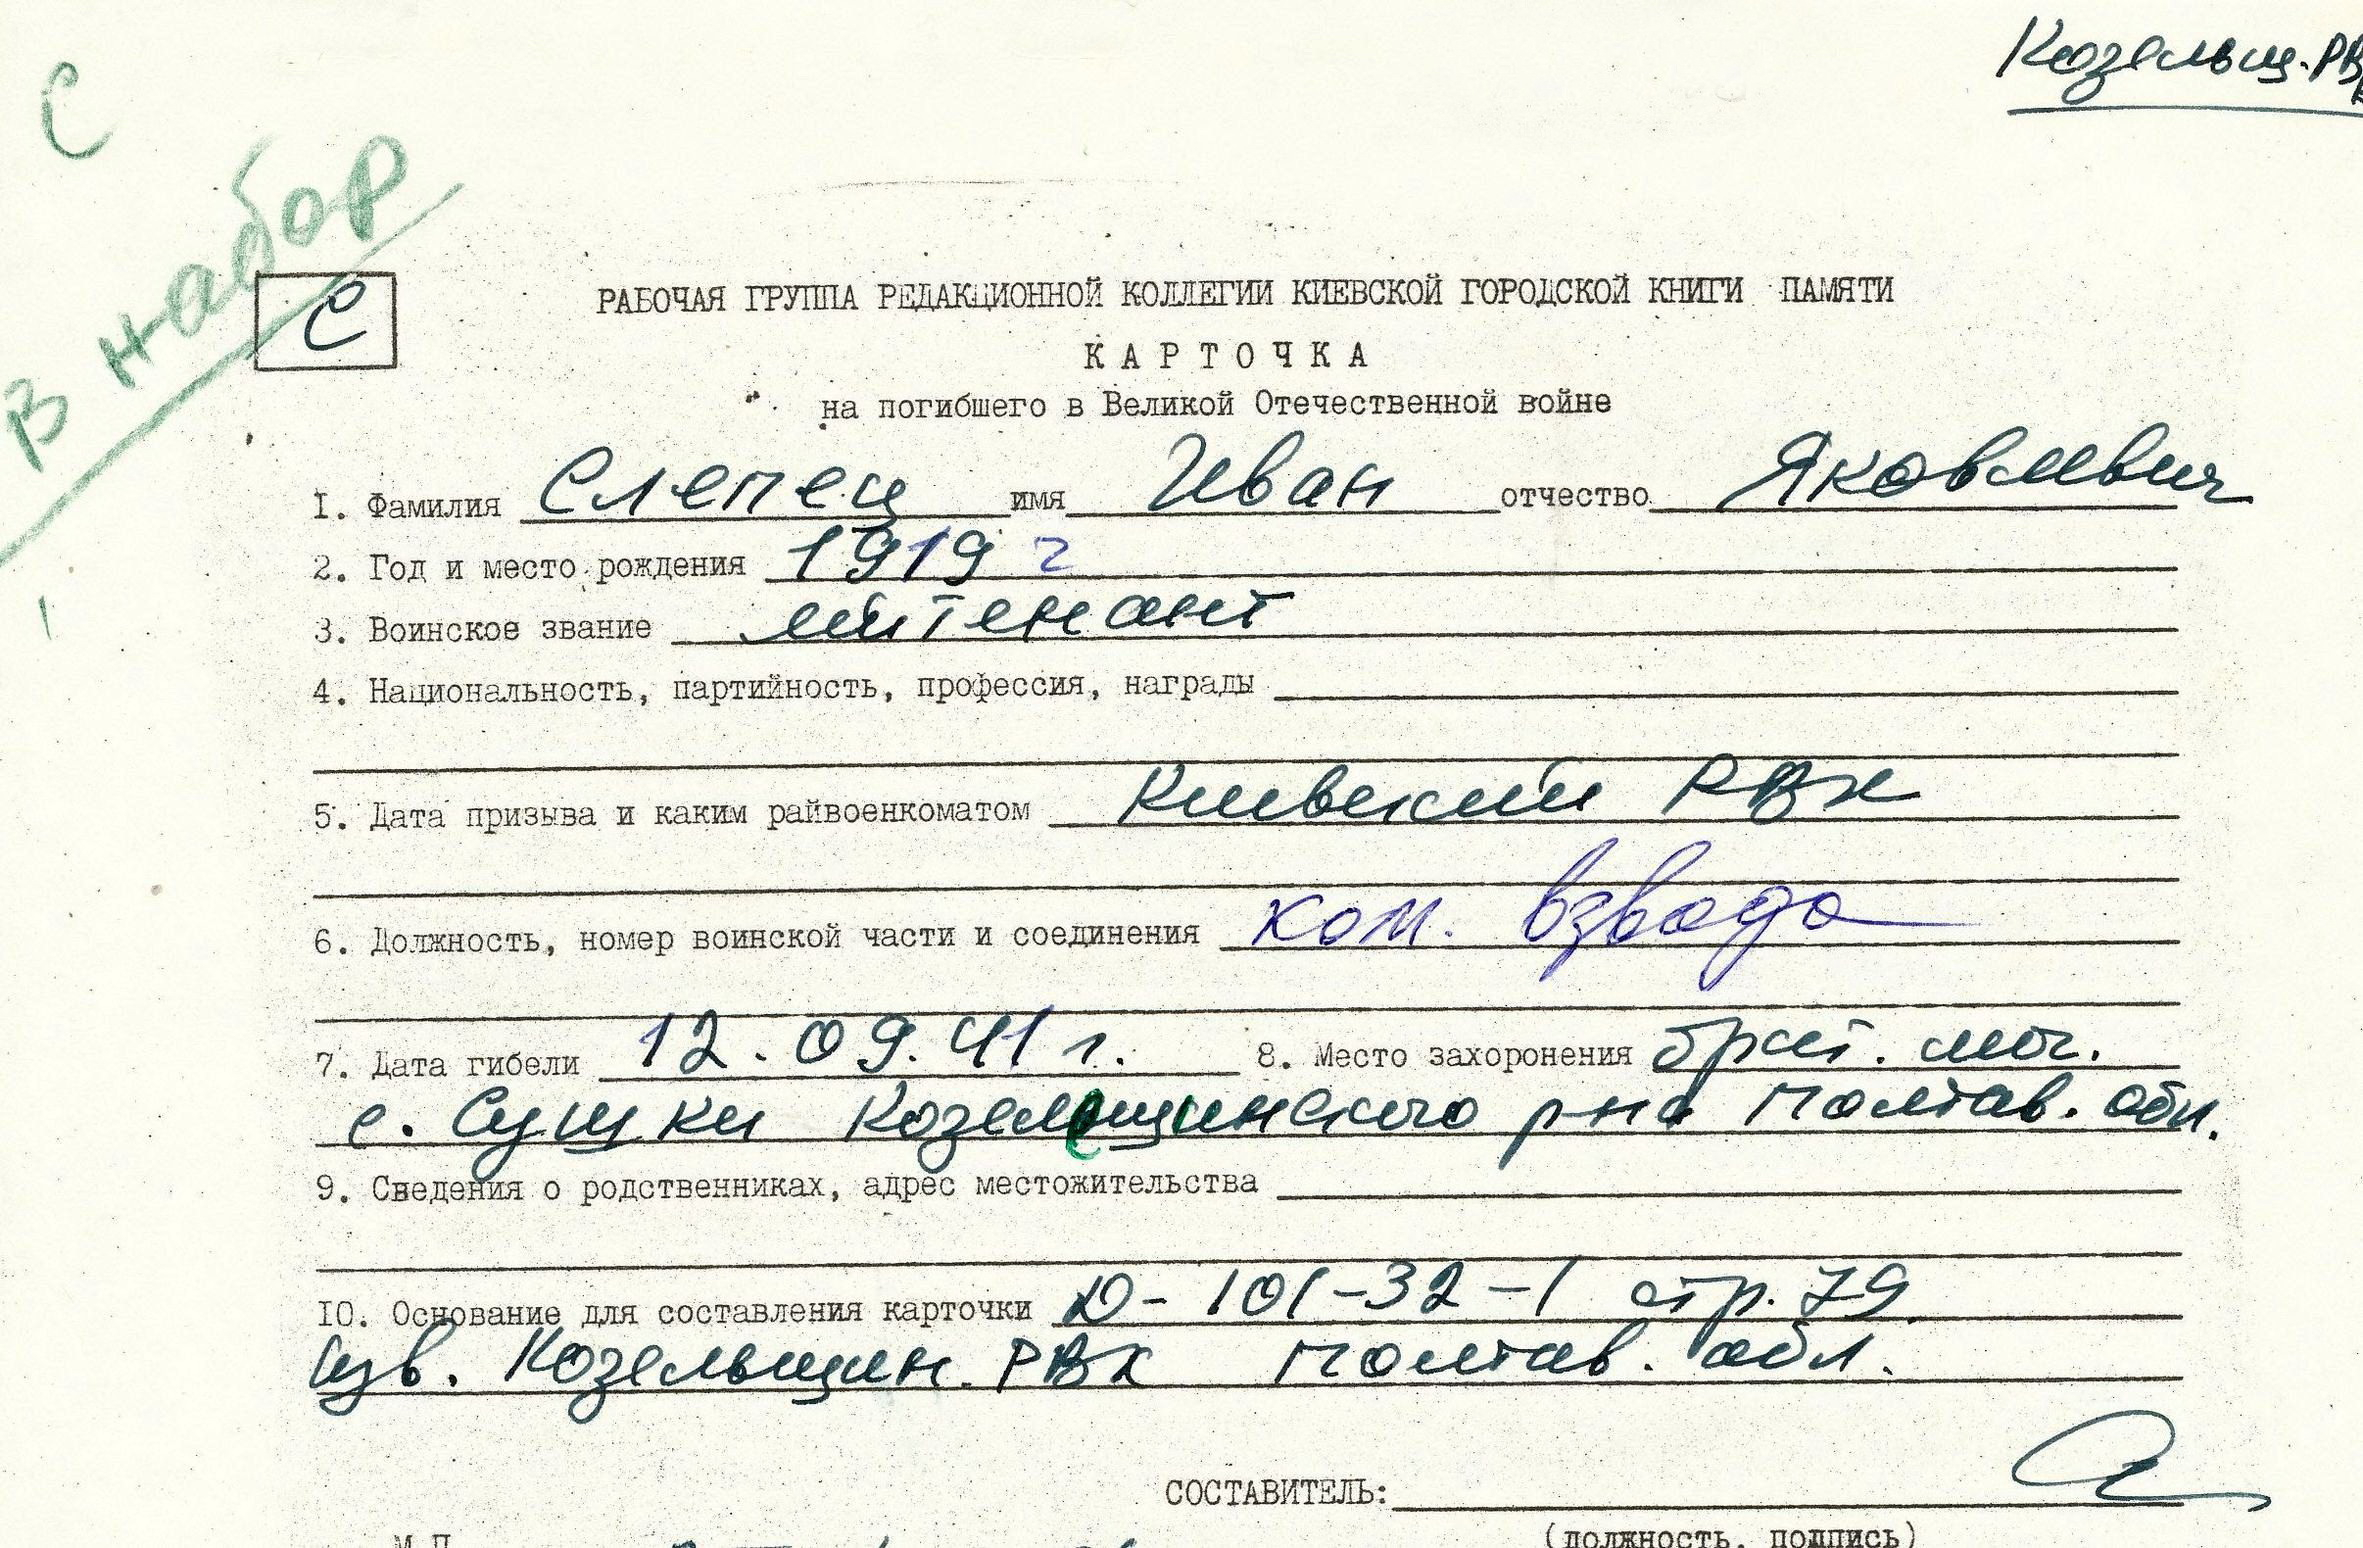 Козельщ. РВК
С
В набор
С
РАБОЧАЯ ГРУППА РЕДАКЦИОННОЙ КОЛЛЕГИИ КИЕВСКОЙ ГОРОДСКОЙ КНИГИ ПАМЯТИ
КАРТОЧКА
на погибшего в Великой Отечественной войне
1. Фамилия Слепец имя Иван отчество Яковлевич
2. Год и место рождения 1919 г
3. Воинское звание лейтенант
4. Национальность, партийность, профессия, награды
5. Дата призыва и каким райвоенкоматом Киевский РВК
6. Должность, номер воинской части и соединения ком. взвода
7. Дата гибели 12.09.41 г. 8. Место захоронения брат. мог.
с. Сушки Козельщинского р-на Полтав. обл.
9. Сведения о родственниках, адрес местожительства
10. Основание для составления карточки Д-101-32-1 стр. 79.
изв. Козельщин. РВК Полтав. обл.
СОСТАВИТЕЛЬ:
(должность, подпись)
М.П.